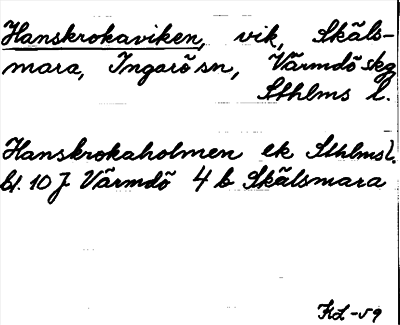 Hanskrokaviken, vik, Skäls-
mara, Ingarö sn, Värmdö skg
Sthlms l.
Hanskrokaholmen ek Sthlms l.
bl. 10 J Värmdö 4 b Skälsmara